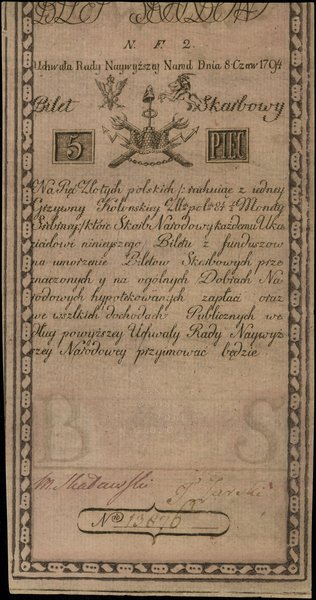 N. F. 2.
Uchwała Rady Naywyższey Narod. Dnia 8 Czerw 1794
Bilet Skarbowy
5 PIĘC
Na Pięć Złotych polskich rachuiąc z iedney
Grzywny Kolonskiey Złł pol: 84 ½ Monety
Srebrney, które Skarb Narodowy każdemu Uka
zicielowi ninieyszego Biletu z funduszow
na umorzenie Biletow Skarbowych prze
znaczonych y na ogolnych Dobrach Na
rodowych hypotekowanych zapłaci oraz
we wszelkich dochodach Publicznych we
dług powyższey Uchwały Rady Naywyż
szey Narodowey przyimować będzie
B S
M. Skadawski
N° 13876